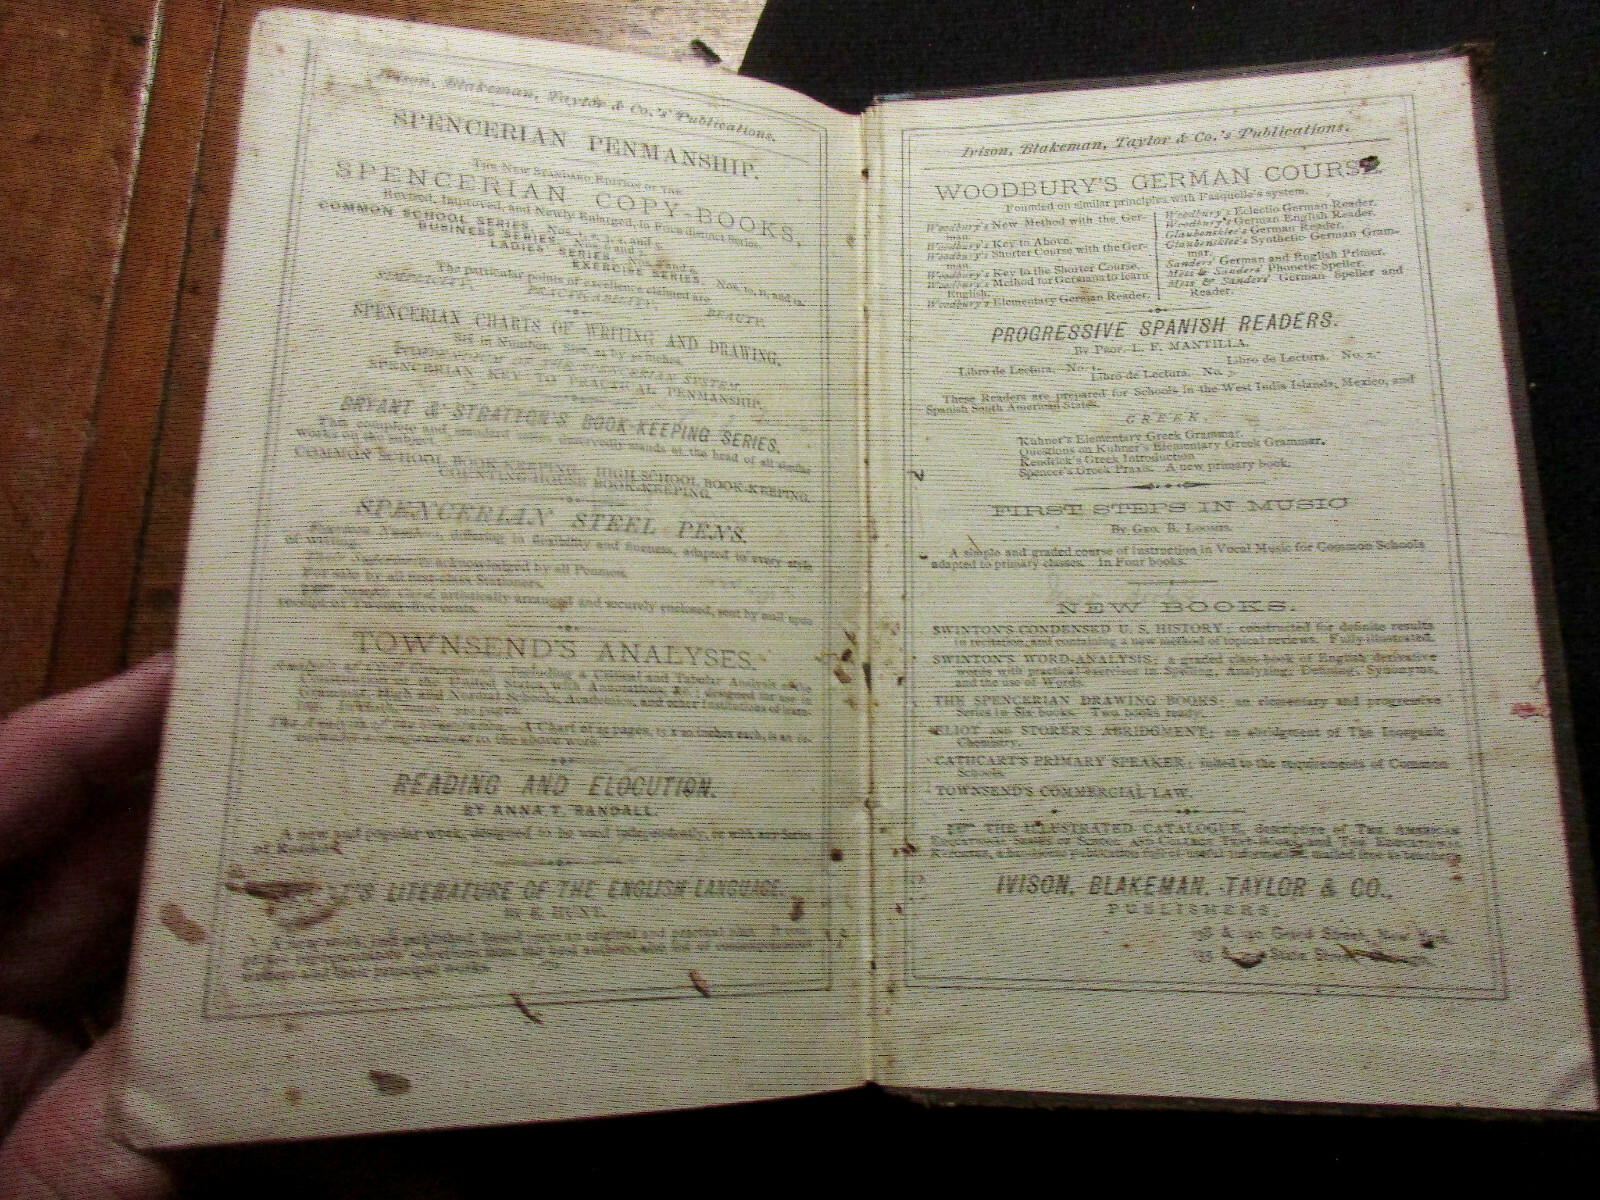 Ivison, Blakeman, Taylor & Co.'s Publications.
SPENCERIAN PENMANSHIP.
THE NEW STANDARD EDITION OF THE
SPENCERIAN COPY-BOOKS,
Revised, Improved, and Newly Enlarged, in Four distinct Series.
COMMON SCHOOL SERIES, Nos. 1, 2, 3, 4, and 5.
BUSINESS SERIES, Nos. 6 and 7.
LADIES' SERIES,
EXERCISE SERIES, Nos. 10, 11, and 12.
The particular points of excellence claimed are
SIMPLICITY, PRACTICABILITY, BEAUTY.
SPENCERIAN CHARTS OF WRITING AND DRAWING,
Six in Number. Size, 24 by 30 inches.
OF THE SPENCERIAN SYSTEM.
SPENCERIAN KEY TO PRACTICAL PENMANSHIP.
BRYANT & STRATTON'S BOOK-KEEPING SERIES.
This complete and standard series deservedly stands at the head of all similar
works on the subject.
COMMON SCHOOL BOOK-KEEPING, HIGH SCHOOL BOOK-KEEPING,
COUNTING-HOUSE BOOK-KEEPING.
SPENCERIAN STEEL PENS.
Numbers, differing in flexibility and fineness, adapted to every style
of writing.
acknowledged by all Penmen.
For sale by all first-class Stationers.
artistically arranged and securely enclosed, sent by mail upon
receipt of Twenty-five cents.
TOWNSEND'S ANALYSES.
Analysis of Civil Government; including a Critical and Tabular Analysis of the
Constitution of the United States, with Annotations, &c.; designed for use in
Grammar, High and Normal Schools, Academies, and other Institutions of learn-
ing.
The Analysis of the A Chart of 25 pages, 15 x 20 inches each, is an
to the above work.
READING AND ELOCUTION.
BY ANNA T. RANDALL.
A new and popular work, designed to be used independently, or with any Series
of Readers.
LITERATURE OF THE ENGLISH LANGUAGE.
BY E. HUNT.
A new work, just published, based upon an original and practical plan.
and their principal works.
Ivison, Blakeman, Taylor & Co.'s Publications.
WOODBURY'S GERMAN COURSE.
Founded on similar principles with Fasquelle's system.
Woodbury's New Method with the Ger-
man.
Woodbury's Key to Above.
Woodbury's Shorter Course with the Ger-
man.
Woodbury's Key to the Shorter Course.
Woodbury's Method for Germans to learn
English.
Woodbury's Elementary German Reader.
Woodbury's Eclectic German Reader.
Woodbury's German English Reader.
Glaubensklee's German Reader.
Glaubensklee's Synthetic German Gram-
mar.
Sanders' German and English Primer.
Mess & Sanders' Phonetic Speller.
Mess & Sanders' German Speller and
Reader.
PROGRESSIVE SPANISH READERS.
By Prof. L. F. MANTILLA.
Libro de Lectura. No. 1. Libro de Lectura. No. 2.
Libro de Lectura. No. 3.
These Readers are prepared for Schools in the West India Islands, Mexico, and
Spanish South American States.
GREEK.
Kuhner's Elementary Greek Grammar.
Questions on Kuhner's Elementary Greek Grammar.
Kendrick's Greek Introduction
Spencer's Greek Praxis. A new primary book.
FIRST STEPS IN MUSIC
By Geo. B. Loomis.
A simple and graded course of instruction in Vocal Music for Common Schools
adapted to primary classes. In Four books.
NEW BOOKS.
SWINTON'S CONDENSED U. S. HISTORY; constructed for definite results
in recitation, and containing a new method of topical reviews. Fully illustrated.
SWINTON'S WORD-ANALYSIS; a graded class-book of English derivative
words with practical exercises in Spelling, Analyzing, Defining, Synonyms,
and the use of Words.
THE SPENCERIAN DRAWING BOOKS; an elementary and progressive
Series in Six books. Two books ready.
ELIOT AND STORER'S ABRIDGMENT; an abridgment of The Inorganic
Chemistry.
CATHCART'S PRIMARY SPEAKER; suited to the requirements of Common
Schools.
TOWNSEND'S COMMERCIAL LAW.
THE ILLUSTRATED CATALOGUE, descriptive of THE AMERICAN
EDUCATIONAL SERIES OF SCHOOL AND COLLEGE TEXT-BOOKS, and THE EDUCATIONAL
REPORTER, a handsome publication full of useful information, mailed free to teachers
IVISON, BLAKEMAN, TAYLOR & CO.,
PUBLISHERS,
138 & 140 Grand Street, New York.
133 State Street,